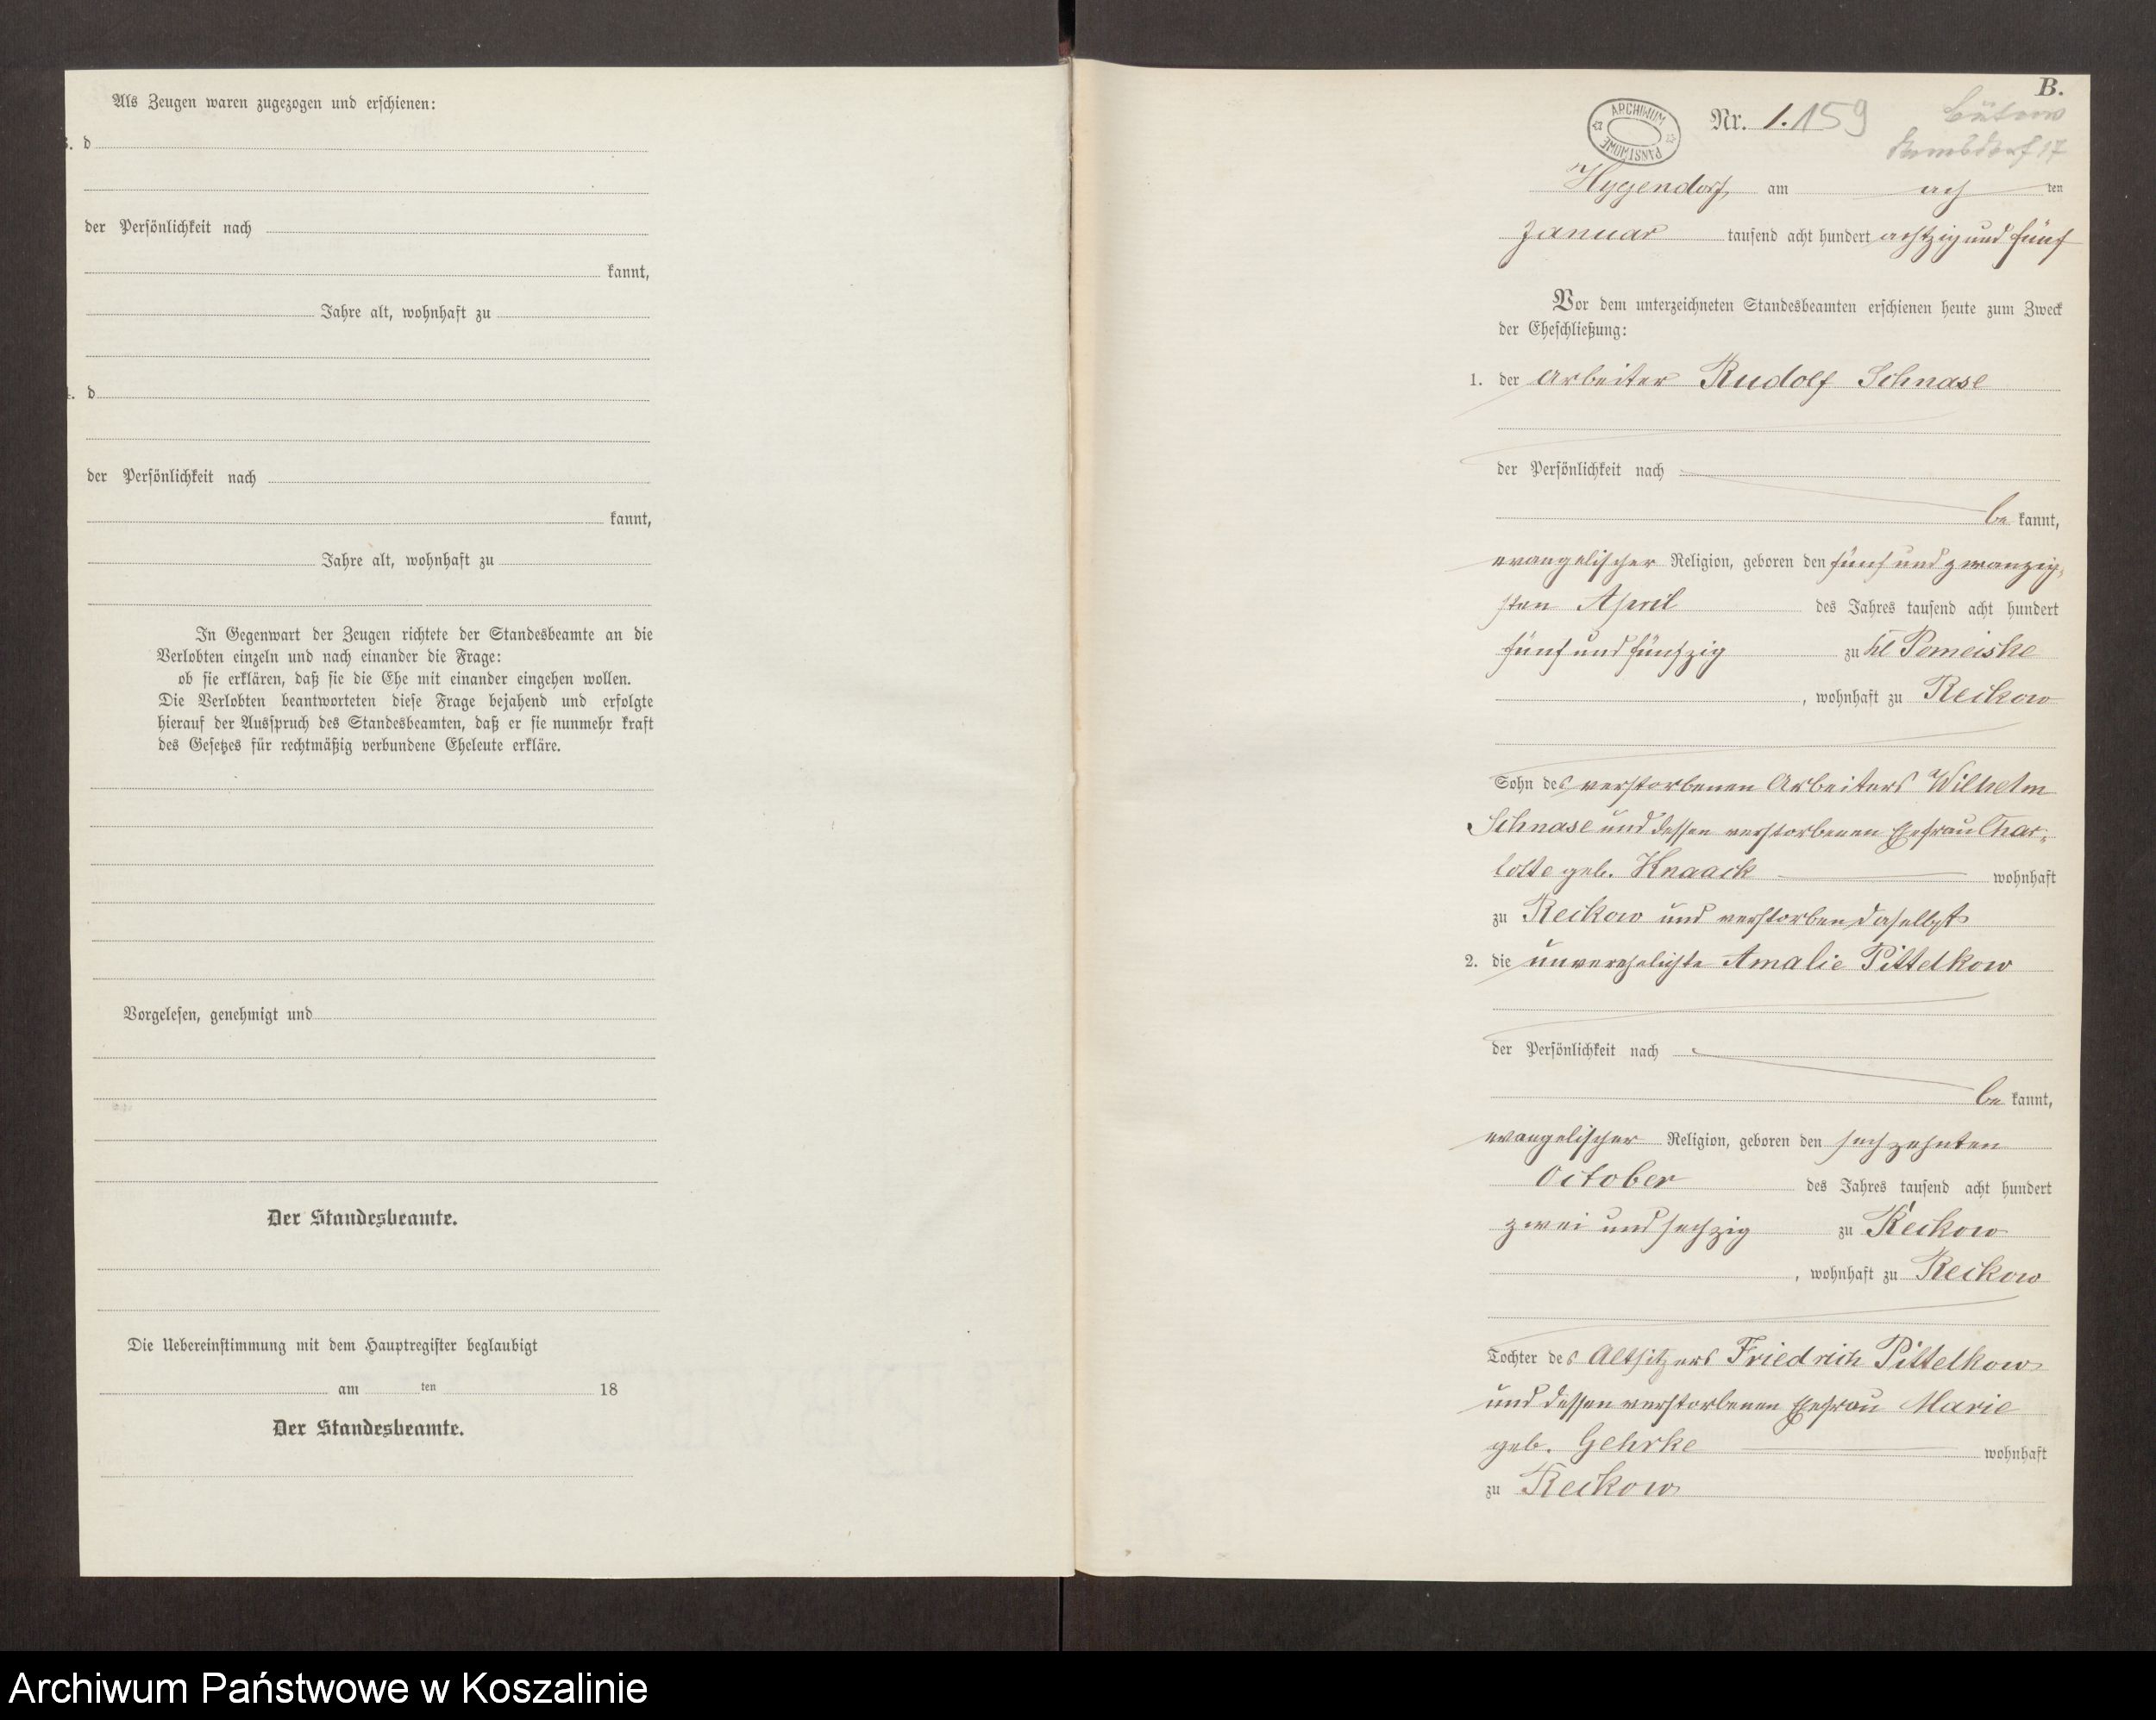 Als Zeugen waren zugezogen und erschienen:
3. d
der Persönlichkeit nach
kannt,
Jahre alt, wohnhaft zu
4. d
der Persönlichkeit nach
kannt,
Jahre alt, wohnhaft zu
In Gegenwart der Zeugen richtete der Standesbeamte an die
Verlobten einzeln und nach einander die Frage:
ob sie erklären, daß sie die Ehe mit einander eingehen wollen.
Die Verlobten beantworteten diese Frage bejahend und erfolgte
hierauf der Ausspruch des Standesbeamten, daß er sie nunmehr kraft
des Gesetzes für rechtmäßig verbundene Eheleute erkläre.
Vorgelesen, genehmigt und
Der Standesbeamte.
Die Uebereinstimmung mit dem Hauptregister beglaubigt
am ten 18
Der Standesbeamte.
B.
ARCHIWUM PAŃSTWOWE
Nr. 1. 159
Bütow
Hygendorf am ach ten
Januar tausend acht hundert achtzig und fünf
Vor dem unterzeichneten Standesbeamten erschienen heute zum Zweck
der Eheschließung:
1. der Arbeiter Rudolf Schnase
der Persönlichkeit nach
be kannt,
evangelischer Religion, geboren den fünf und zwanzig-
sten April des Jahres tausend acht hundert
fünf und fünfzig zu Kl Pomeiske
, wohnhaft zu Reckow
Sohn des verstorbenen Arbeiters Wilhelm
Schnase und dessen verstorbenen Ehefrau Char-
lotte geb. Knaack wohnhaft
zu Reckow und verstorben daselbst
2. die unverehelichte Amalie Pittelkow
der Persönlichkeit nach
be kannt,
evangelischer Religion, geboren den sechzehnten
October des Jahres tausend acht hundert
zwei und sechzig zu Reckow
, wohnhaft zu Reckow
Tochter des Altsitzers Friedrich Pittelkow
und dessen verstorbenen Ehefrau Marie
geb. Gehrke wohnhaft
zu Reckow
Archiwum Państwowe w Koszalinie